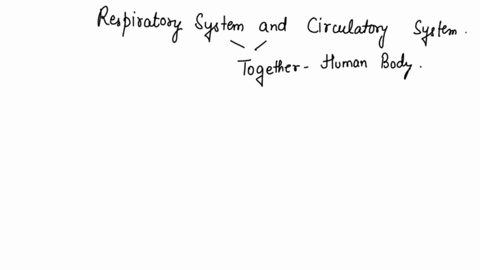 Respiratory System and Circulatory System.
Together - Human Body.